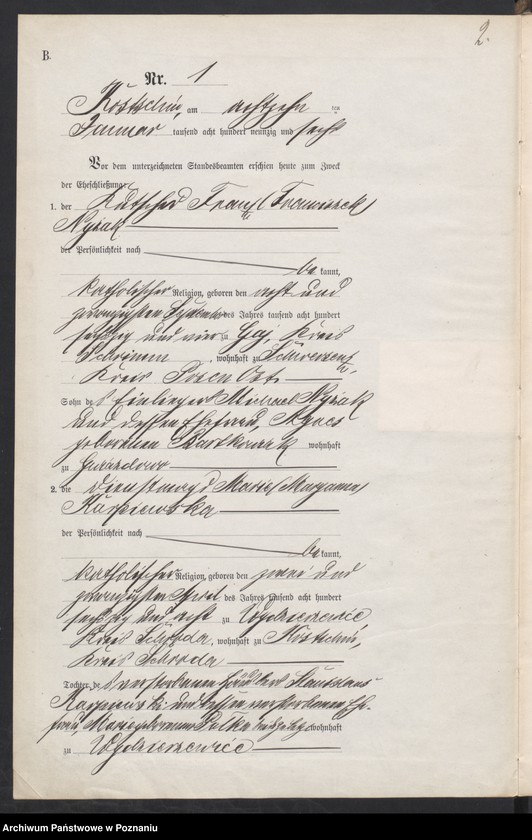 2.
B.
Nr. 1
Kostschin, am achtzehn ten
Januar tausend acht hundert neunzig und sechs
Vor dem unterzeichneten Standesbeamten erschien heute zum Zweck
der Eheschließung:
1. der Kutscher Franz (Franciszek)
der Persönlichkeit nach
be kannt,
katholischer Religion, geboren den acht und
zwanzigsten September des Jahres tausend acht hundert
sechzig und vier zu Gaj, Kreis
Schrimm, wohnhaft zu
Kreis Posen Ost
Sohn des Einliegers Michael
und dessen Ehefrau, Agnes
geborenen Bartkowiak wohnhaft
zu
2. die Dienstmagd Marie (Maryanna)
der Persönlichkeit nach
be kannt,
katholischer Religion, geboren den zwei und
zwanzigsten April des Jahres tausend acht hundert
sechzig und acht zu
Kreis Schroda, wohnhaft zu Kostschin,
Kreis Schroda
Tochter des verstorbenen Häuslers Stanislaus
und dessen verstorbenen Ehe-
frau, Marie geborenen Polka wohnhaft
zu
Archiwum Państwowe w Poznaniu